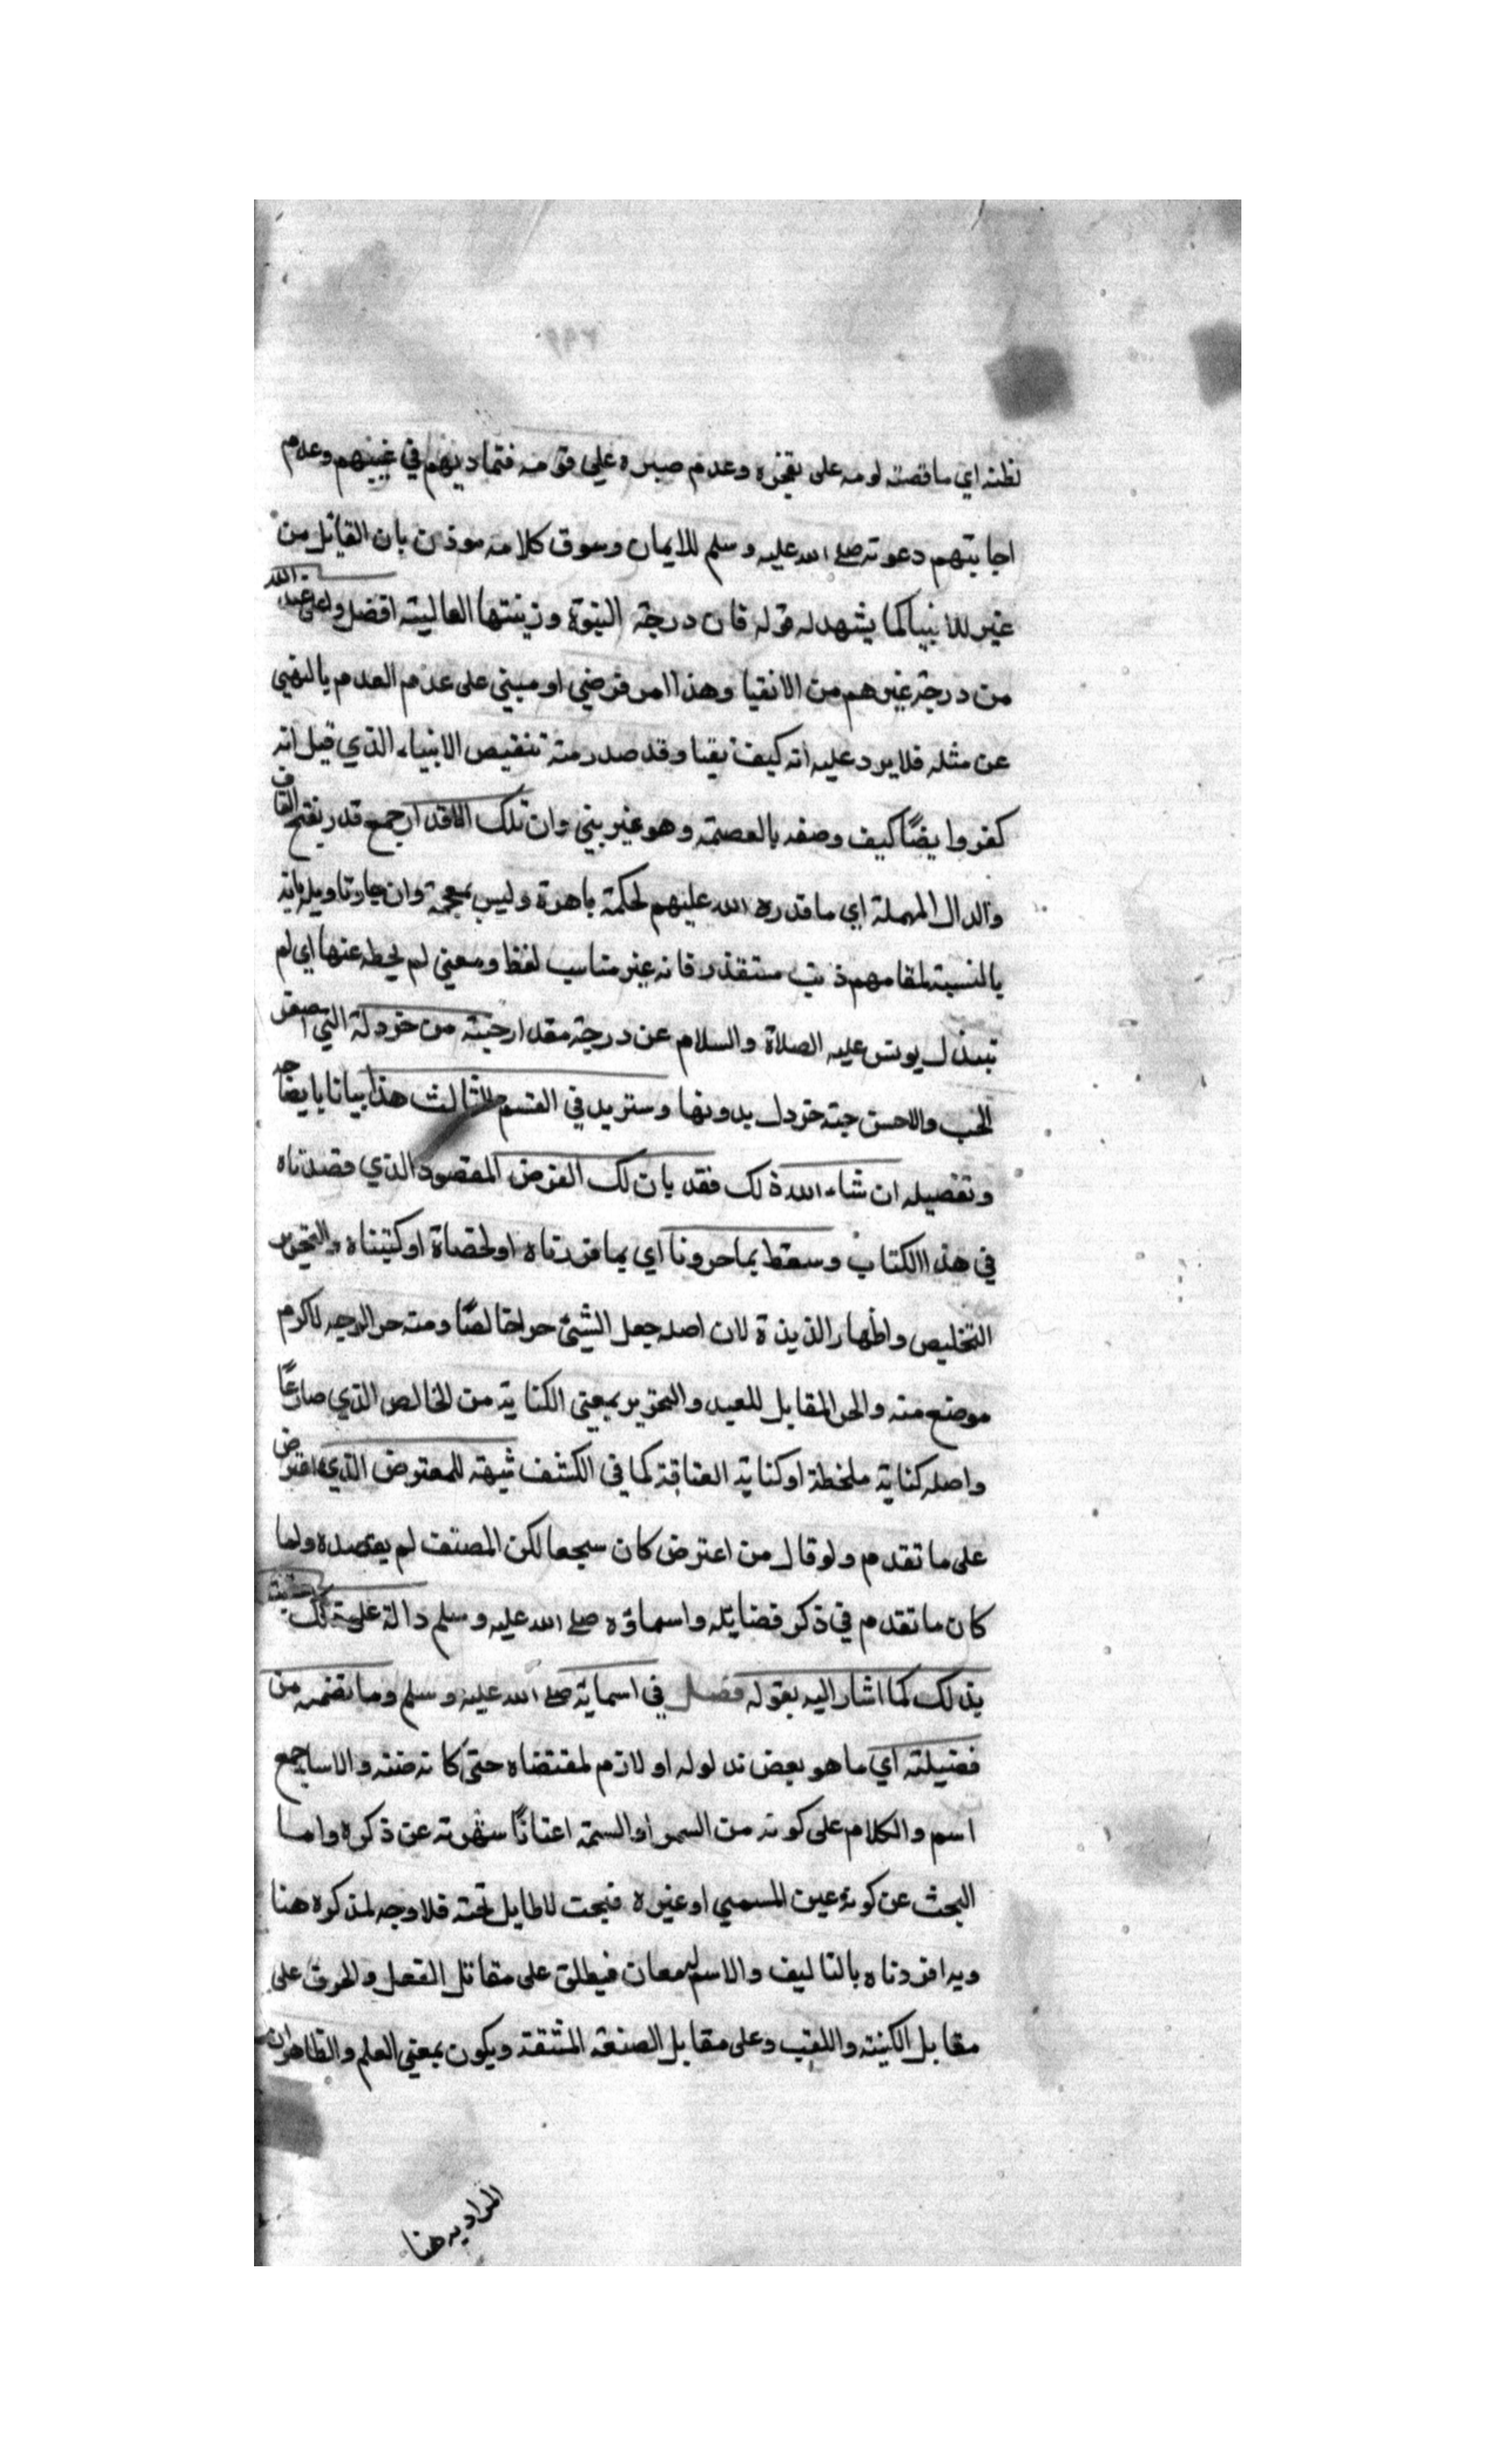 لظنه اي ما قصته لومه على تقجزه وعدم صبره علي قومه فتماديهم في غييهم وعدم
اجابتهم دعوته صلى الله عليه وسلم للايمان وسوق كلامه موذن بان القائل من
غير للانبيا كما يشهد له قوله فان درجة النبوة وزينتها العالية افضل واعلى عند الله
من درجة غيرهم من الانقيا وهذا امر فرضي او مبني على عدم العدم بالنهي
عن مثله فلا يرد عليه انه كيف تقيا وقد صدر منه تنقيص الانبياء الذي قيل انه
كفر وايضًا كيف وصفه بالعصمة وهو غير بني وان تلك الاقدار جمع قدر بفتح القاف
والدال المهملة اي ما قدره الله عليهم لحكمة باهرة وليس بمعجمة وان جاز تاويله بانه
بالنسبة لمقامهم ذنب مستقذر فانه غير مناسب لفظا ومعني لم يحطه عنها اي لم
تبذل يونس عليه الصلاة والسلام عن درجة مقدار حبة من خردلة التي اصغر
الحب والاحسن حبة خردل بدونها وستريد في القسم الثالث هذا بيانا بايضاحه
وتفصيله ان شاء الله ذلك فقد بان لك الغرض المقصود الذي قصدناه
في هذا الكتاب وسقط بما حررونا اي بما قررناه او لخصاة او كتبناه والتحرير
التخليص واظهار الذبذة لان اصله جعل الشيئ حرا خالصًا ومنه حر الوجه لاكرم
موضع منه والحر المقابل للعبد والتحرير بمعني الكتابة من الخالص الذي صار عًا
واصله كتابة ملخطة او كتابة العتاقة كما في الكشف شبهة للمعترض الذي اعترض
على ما تقدم ولو قال من اعترض كان سجعا لكن المصنف لم يقصده ولما
كان ما تقدم في ذكر فضايله واسماؤه صلى الله عليه وسلم دالة على ذلك
بذلك كما اشار اليه بقوله فصل في اسمايه صلى الله عليه وسلم وما تضمنه من
فضيلته اي ما هو بعض مدلوله او لازم لمقتضاه حتى كانه ضمنه والاسما جمع
اسم والكلام على كونه من السمو او السمة اعنانًا شهرته عن ذكره واما
البحث عن كونه عين المسمي او غيره فبحث لا طايل تحته فلا وجه لذكره هنا
وبه افردناه بالتاليف والاسم لمعان فيطلق على مقابل الفعل والحرف على
مقابل الكنية واللقب وعلى مقابل الصفة المشتقة ويكون بمعني العلم والظاهر ان
المراد به هنا